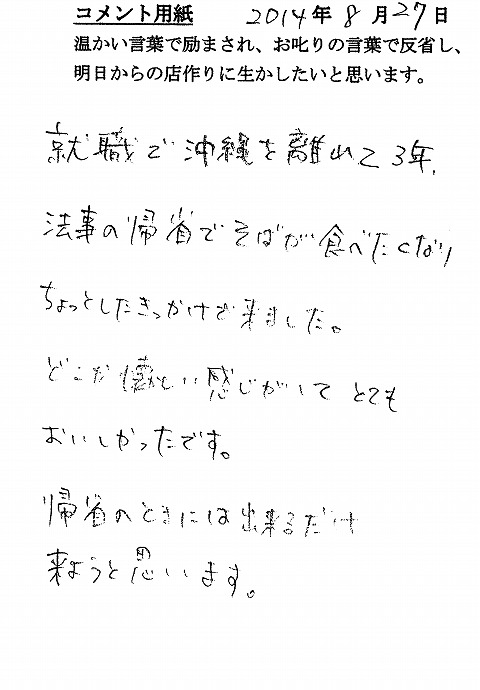 コメント用紙 2014年8月27日
温かい言葉で励まされ、お叱りの言葉で反省し、
明日からの店作りに生かしたいと思います。
就職で沖縄を離れて3年、
法事の帰省でそばが食べたくなり
ちょっとしたきっかけで来ました。
どこか懐しい感じがして とても
おいしかったです。
帰省のときには出来るだけ
来ようと思います。